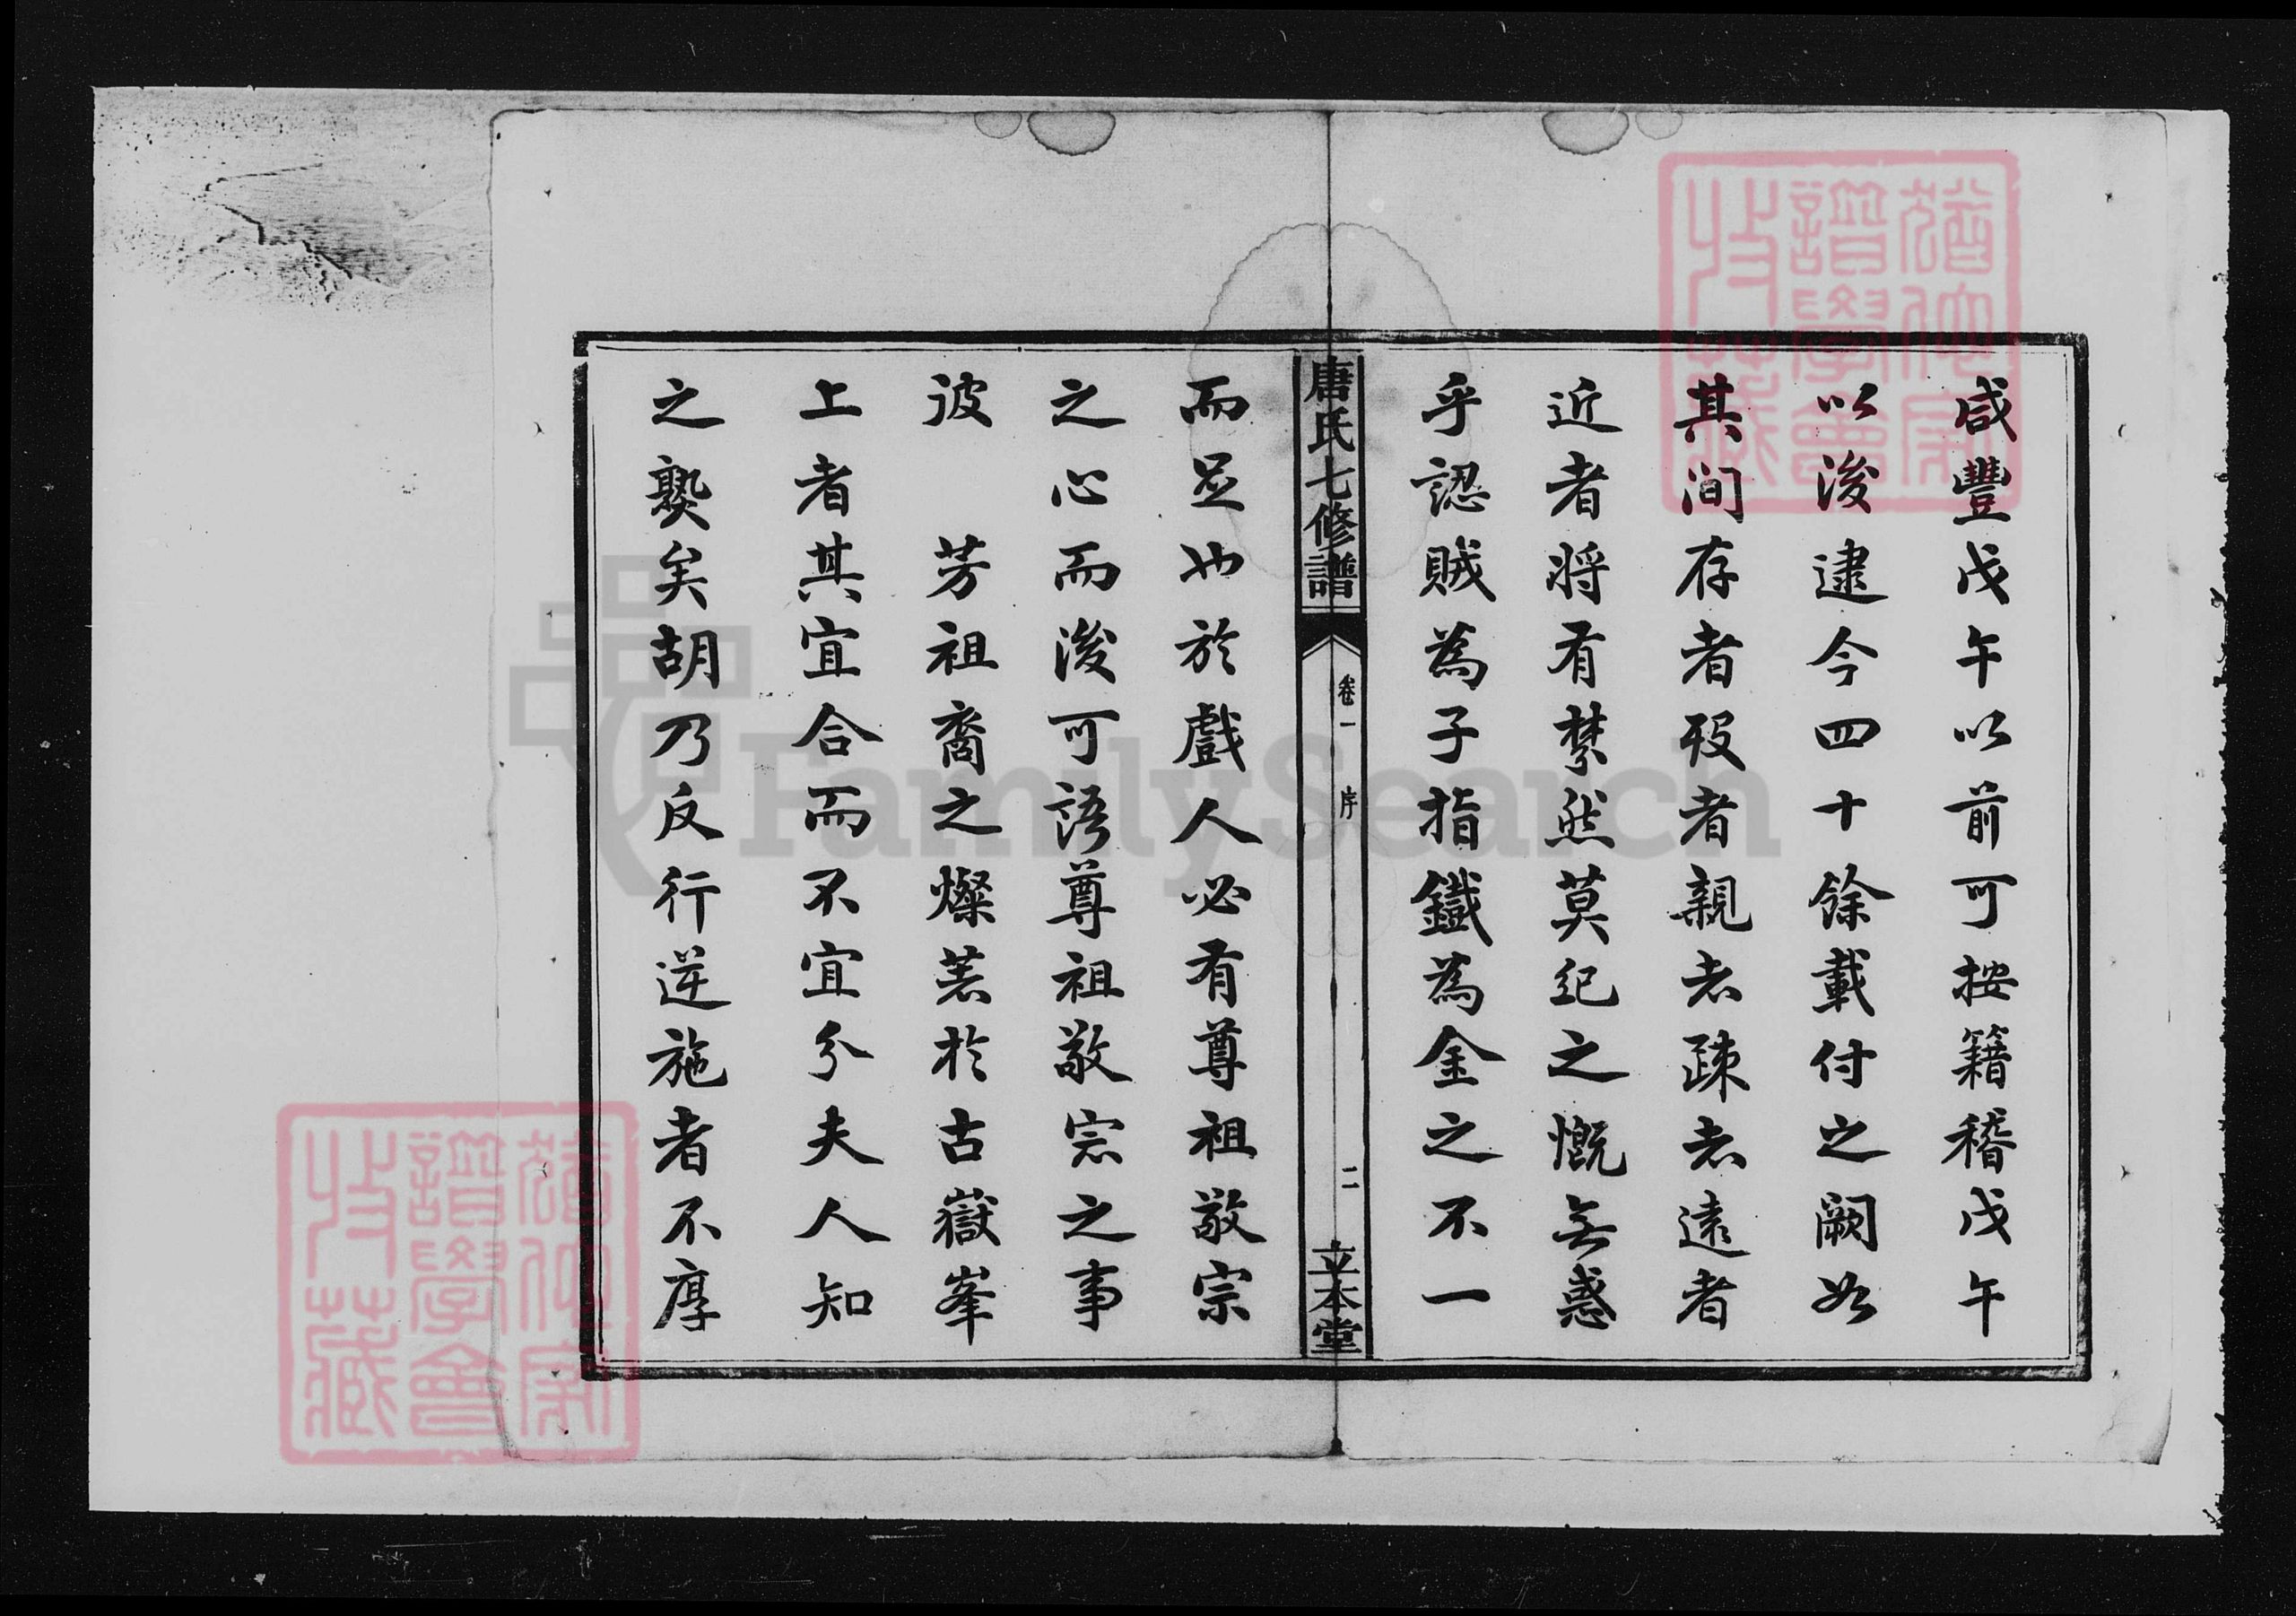 咸豐戊午以前可按籍稽戊午
以後逮今四十餘載付之闕如
其间存者歿者親者疎者遠者
近者將有棼然莫纪之慨無惑
乎認賊為子指鐵為金之不一
唐氏七修譜 卷一 序 二 立本堂
而足也於戲人必有尊祖敬宗
之心而後可語尊祖敬宗之事
彼 芳祖裔之燦著於古嶽峯
上者其宜合而不宜分夫人知
之爇矣胡乃反行逆施者不厚
譜學會
收藏
譜學會
收藏
FamilySearch